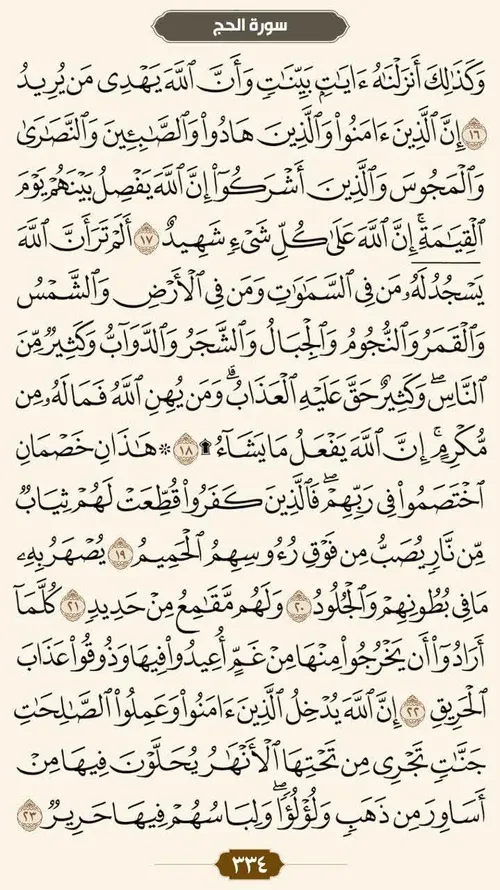 سورة الحج
وَكَذَٰلِكَ أَنزَلْنَٰهُ ءَايَٰتٍۭ بَيِّنَٰتٍ وَأَنَّ ٱللَّهَ يَهْدِى مَن يُرِيدُ
١٦ إِنَّ ٱلَّذِينَ ءَامَنُوا۟ وَٱلَّذِينَ هَادُوا۟ وَٱلصَّٰبِـِٔينَ وَٱلنَّصَٰرَىٰ
وَٱلْمَجُوسَ وَٱلَّذِينَ أَشْرَكُوٓا۟ إِنَّ ٱللَّهَ يَفْصِلُ بَيْنَهُمْ يَوْمَ
ٱلْقِيَٰمَةِ ۚ إِنَّ ٱللَّهَ عَلَىٰ كُلِّ شَىْءٍ شَهِيدٌ ١٧ أَلَمْ تَرَ أَنَّ ٱللَّهَ
يَسْجُدُ لَهُۥ مَن فِى ٱلسَّمَٰوَٰتِ وَمَن فِى ٱلْأَرْضِ وَٱلشَّمْسُ
وَٱلْقَمَرُ وَٱلنُّجُومُ وَٱلْجِبَالُ وَٱلشَّجَرُ وَٱلدَّوَآبُّ وَكَثِيرٌ مِّنَ
ٱلنَّاسِ ۖ وَكَثِيرٌ حَقَّ عَلَيْهِ ٱلْعَذَابُ ۗ وَمَن يُهِنِ ٱللَّهُ فَمَا لَهُۥ مِن
مُّكْرِمٍ ۚ إِنَّ ٱللَّهَ يَفْعَلُ مَا يَشَآءُ ۩ ١٨ ۞ هَٰذَانِ خَصْمَانِ
ٱخْتَصَمُوا۟ فِى رَبِّهِمْ ۖ فَٱلَّذِينَ كَفَرُوا۟ قُطِّعَتْ لَهُمْ ثِيَابٌ
مِّن نَّارٍ يُصَبُّ مِن فَوْقِ رُءُوسِهِمُ ٱلْحَمِيمُ ١٩ يُصْهَرُ بِهِۦ
مَا فِى بُطُونِهِمْ وَٱلْجُلُودُ ٢٠ وَلَهُم مَّقَٰمِعُ مِنْ حَدِيدٍ ٢١ كُلَّمَآ
أَرَادُوٓا۟ أَن يَخْرُجُوا۟ مِنْهَا مِنْ غَمٍّ أُعِيدُوا۟ فِيهَا وَذُوقُوا۟ عَذَابَ
ٱلْحَرِيقِ ٢٢ إِنَّ ٱللَّهَ يُدْخِلُ ٱلَّذِينَ ءَامَنُوا۟ وَعَمِلُوا۟ ٱلصَّٰلِحَٰتِ
جَنَّٰتٍ تَجْرِى مِن تَحْتِهَا ٱلْأَنْهَٰرُ يُحَلَّوْنَ فِيهَا مِنْ
أَسَاوِرَ مِن ذَهَبٍ وَلُؤْلُؤًا ۖ وَلِبَاسُهُمْ فِيهَا حَرِيرٌ ٢٣
٣٣٤